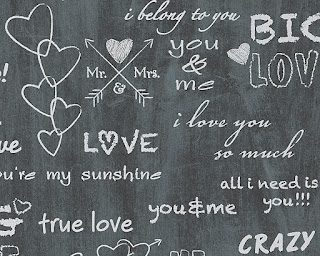 i belong to you
BIG
LOVE
you
&
me
Mr.
Mrs.
&
i love you
so much
LOVE
you're my sunshine
all i need is
you!!!
you&me
true love
CRAZY